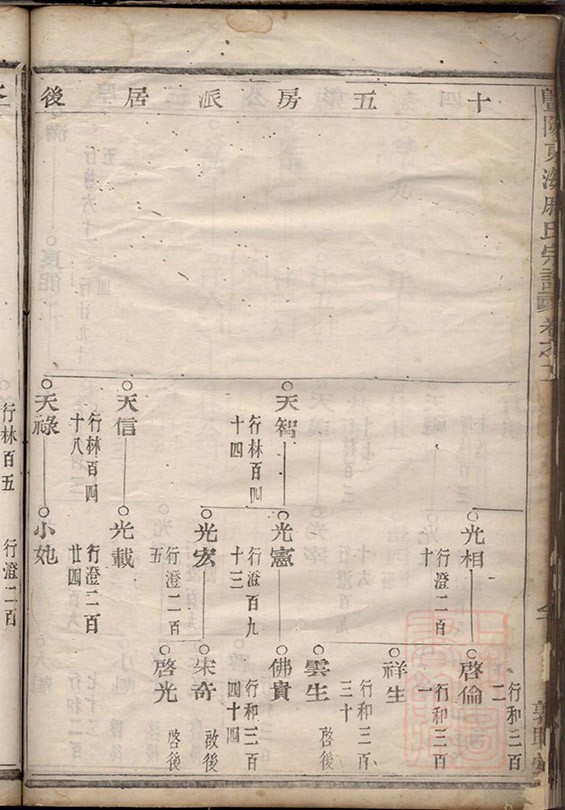 暨陽東海
氏宗譜卷之
十五房派居後
光相
行澄二百
十
啓倫
行和三百
二
祥生
行和三百
一
雲生
行和三百
三十
啓後
天智
行林百四
十四
光憲
行澄百九
十三
佛貴
行和二百
四十四
光宏
行澄二百
五
宋奇
啟後
啓光
啓後
天信
行林百四
十八
光載
行澄二百
廿四
天祿
行林百五
小
行澄二百